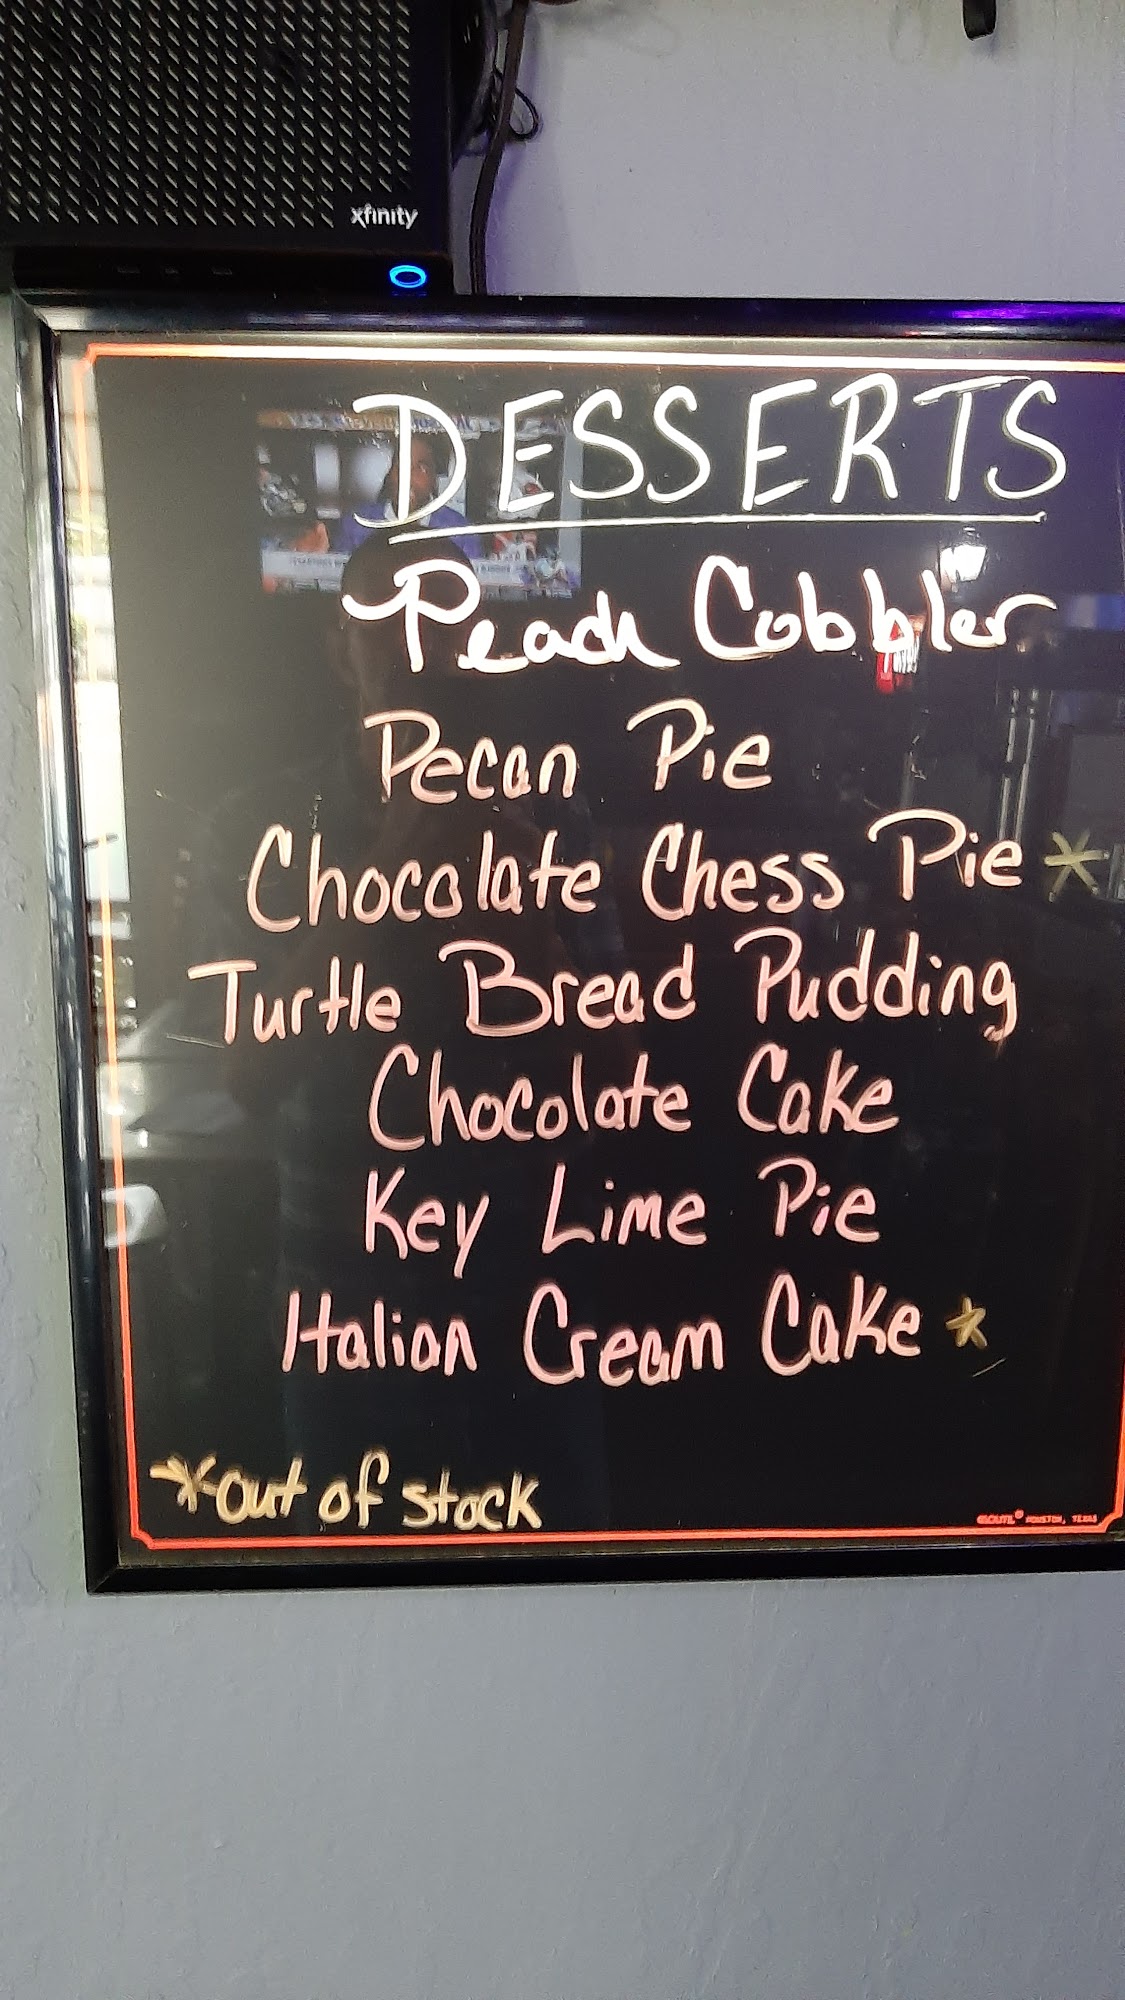 xfinity
DESSERTS
Peach Cobbler
Pecan Pie
Chocolate Chess Pie *
Turtle Bread Pudding
Chocolate Cake
Key Lime Pie
Italian Cream Cake *
*out of stock
HOUSTON, TEXAS